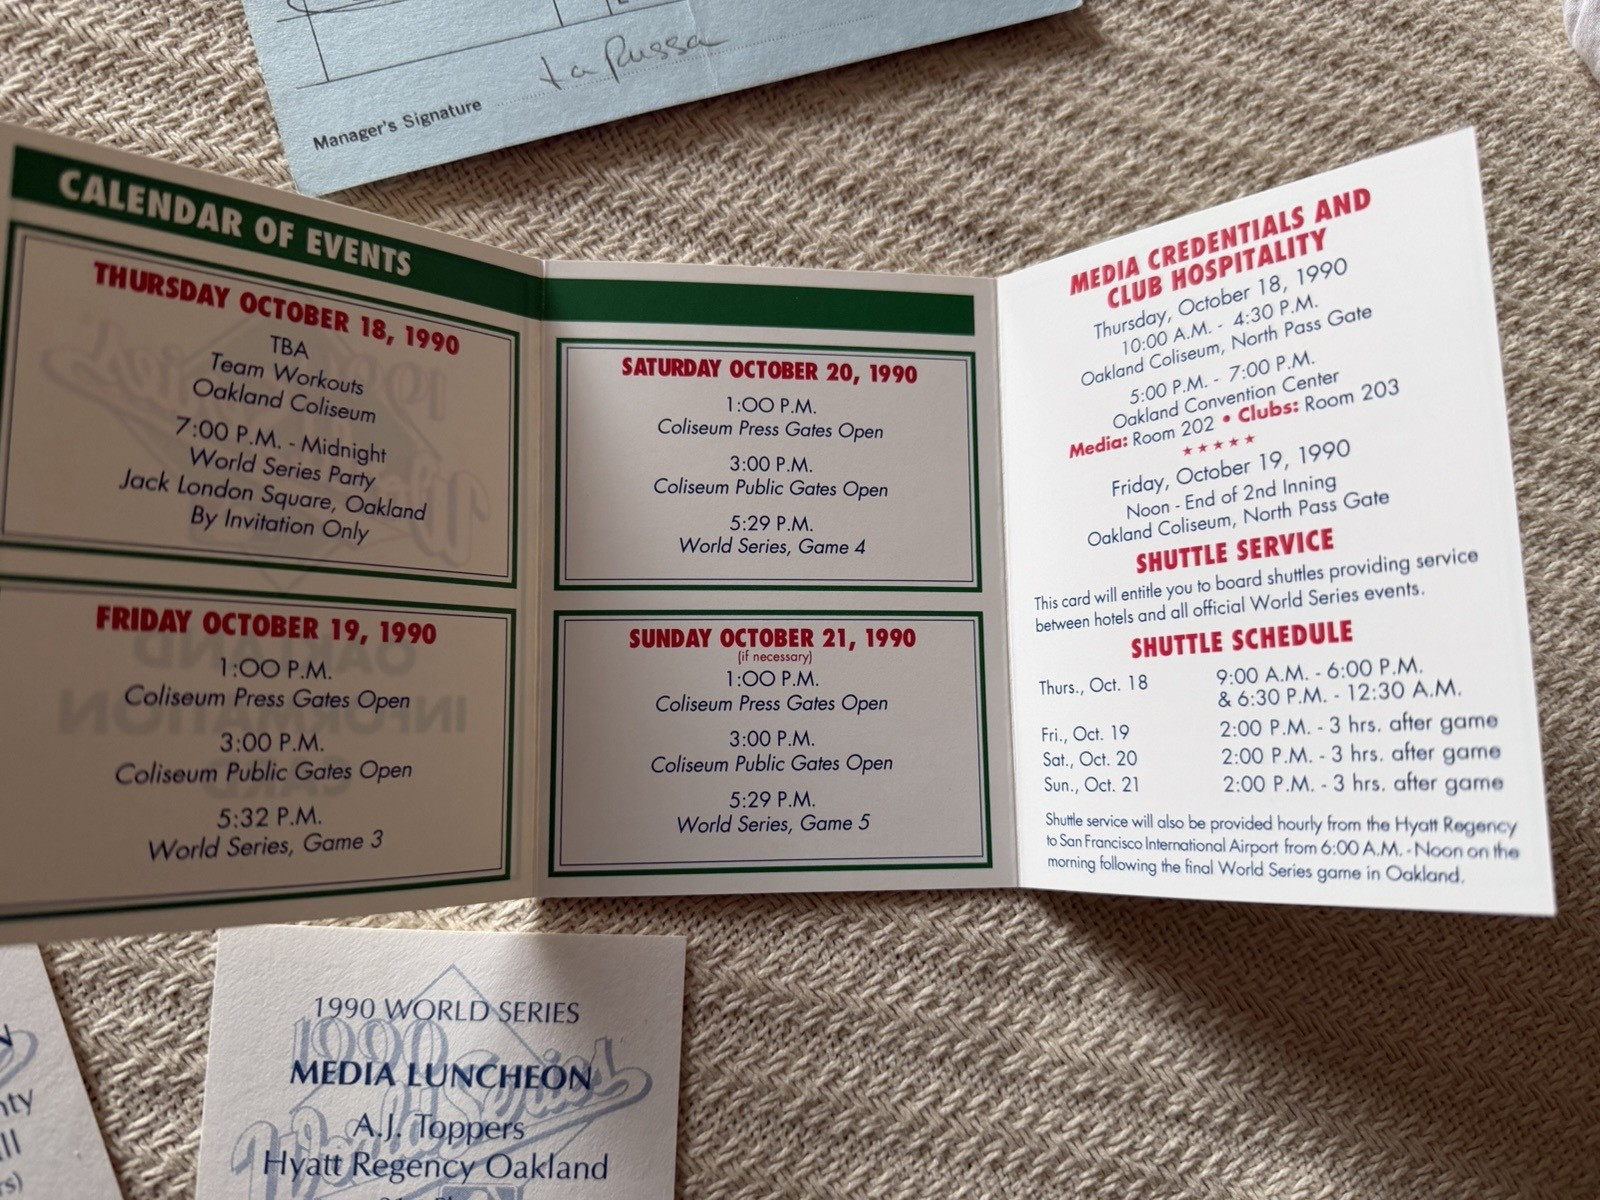 La Russa
Manager's Signature
CALENDAR OF EVENTS
THURSDAY OCTOBER 18, 1990
TBA
Team Workouts
Oakland Coliseum
7:00 P.M. - Midnight
World Series Party
Jack London Square, Oakland
By Invitation Only
FRIDAY OCTOBER 19, 1990
1:00 P.M.
Coliseum Press Gates Open
3:00 P.M.
Coliseum Public Gates Open
5:32 P.M.
World Series, Game 3
SATURDAY OCTOBER 20, 1990
1:00 P.M.
Coliseum Press Gates Open
3:00 P.M.
Coliseum Public Gates Open
5:29 P.M.
World Series, Game 4
SUNDAY OCTOBER 21, 1990
(if necessary)
1:00 P.M.
Coliseum Press Gates Open
3:00 P.M.
Coliseum Public Gates Open
5:29 P.M.
World Series, Game 5
MEDIA CREDENTIALS AND
CLUB HOSPITALITY
Thursday, October 18, 1990
10:00 A.M. - 4:30 P.M.
Oakland Coliseum, North Pass Gate
5:00 P.M. - 7:00 P.M.
Oakland Convention Center
Media: Room 202 • Clubs: Room 203
★★★★★
Friday, October 19, 1990
Noon - End of 2nd Inning
Oakland Coliseum, North Pass Gate
SHUTTLE SERVICE
This card will entitle you to board shuttles providing service
between hotels and all official World Series events.
SHUTTLE SCHEDULE
Thurs., Oct. 18 9:00 A.M. - 6:00 P.M.
& 6:30 P.M. - 12:30 A.M.
Fri., Oct. 19 2:00 P.M. - 3 hrs. after game
Sat., Oct. 20 2:00 P.M. - 3 hrs. after game
Sun., Oct. 21 2:00 P.M. - 3 hrs. after game
Shuttle service will also be provided hourly from the Hyatt Regency
to San Francisco International Airport from 6:00 A.M. - Noon on the
morning following the final World Series game in Oakland.
1990 WORLD SERIES
MEDIA LUNCHEON
A.J. Toppers
Hyatt Regency Oakland
1990
World Series